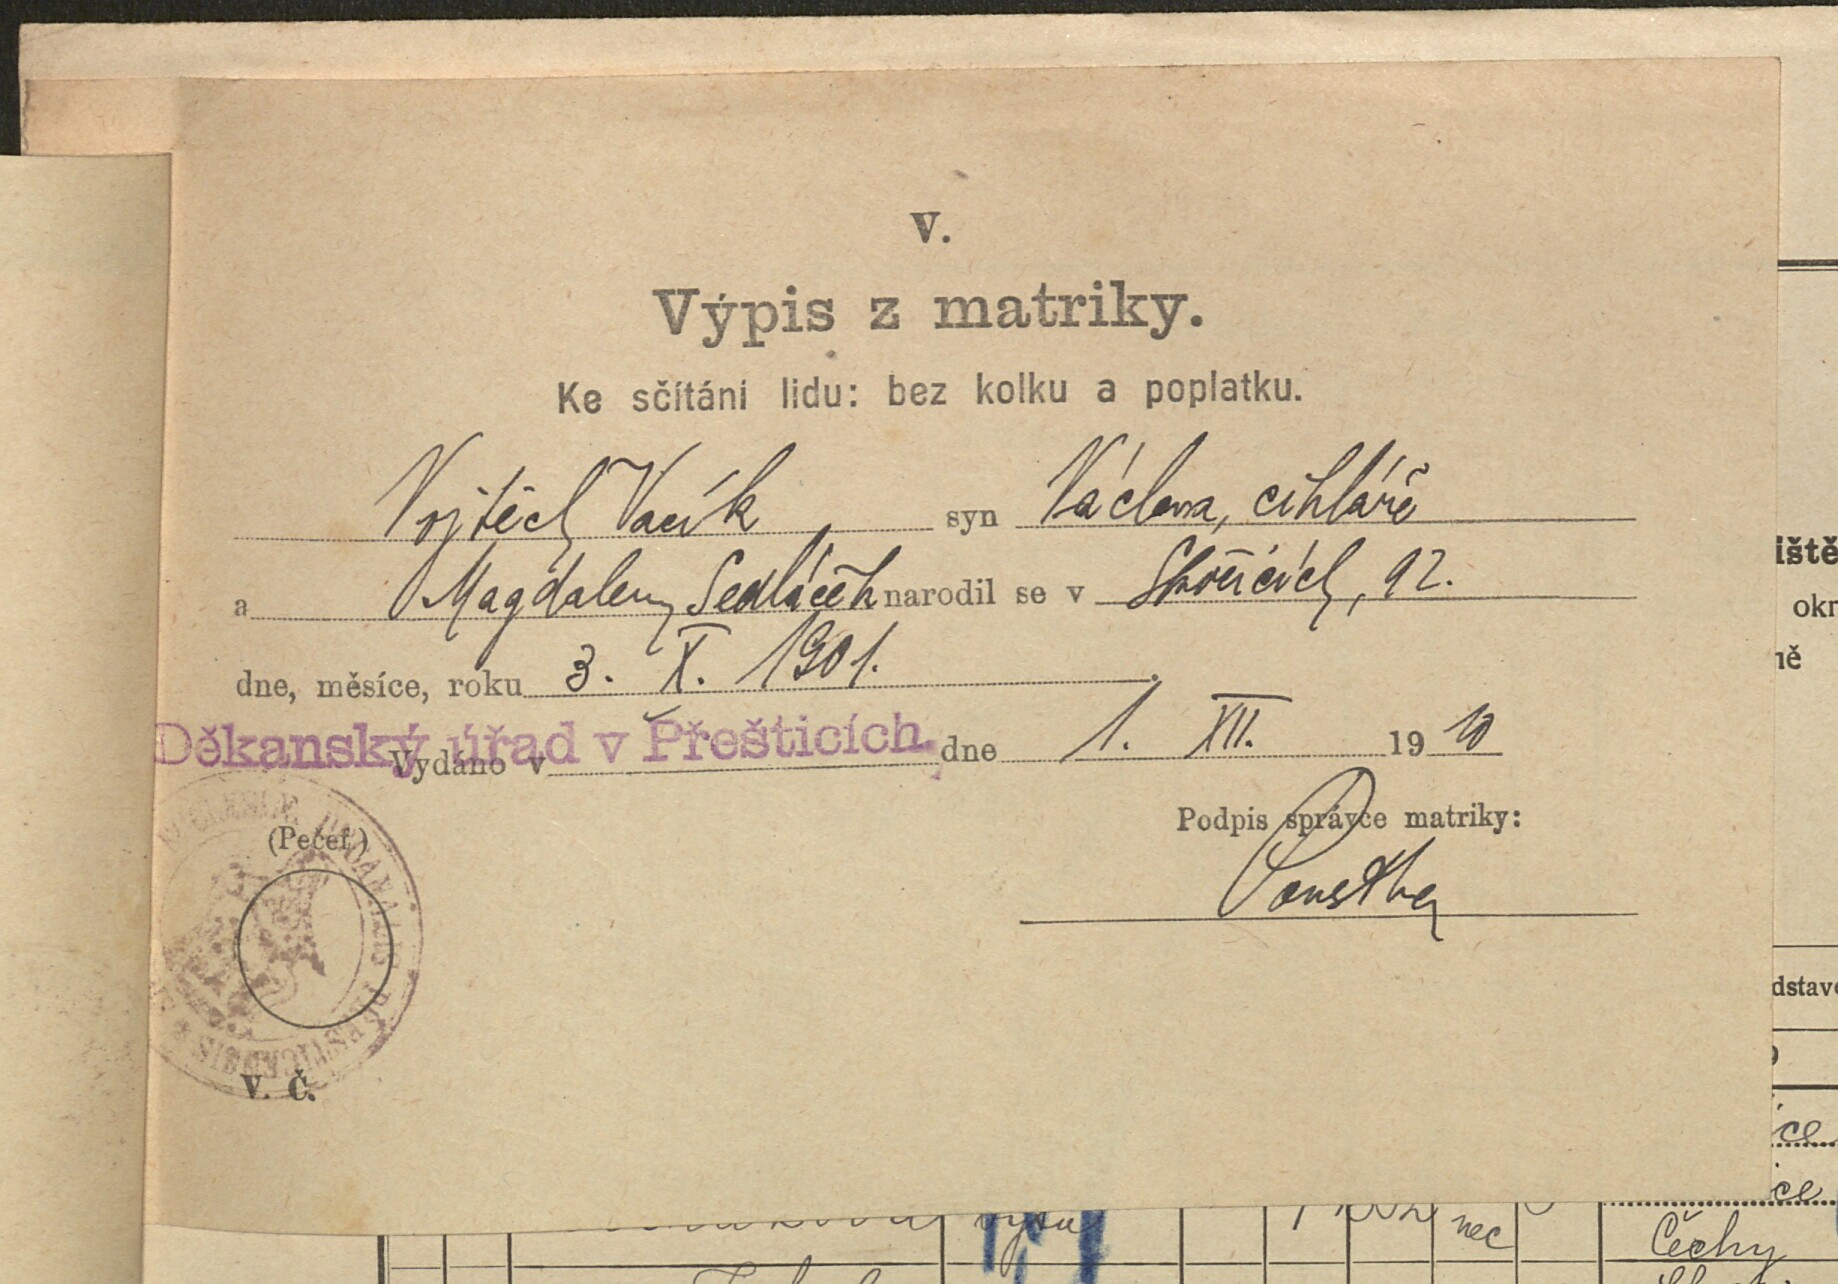 V.
Výpis z matriky.
Ke sčítání lidu: bez kolku a poplatku.
Vojtěch Vacík syn Václava, cihláře
a Magdaleny Sedláček narodil se v Skočicích, 92.
dne, měsíce, roku 3. X. 1901.
Děkanský úřad v Přešticích
Vydáno v dne 1. XII. 1910
(Pečeť)
Podpis správce matriky:
V. Č.
iště
okr
ně
dstave
ice
ice
nec
Čechy